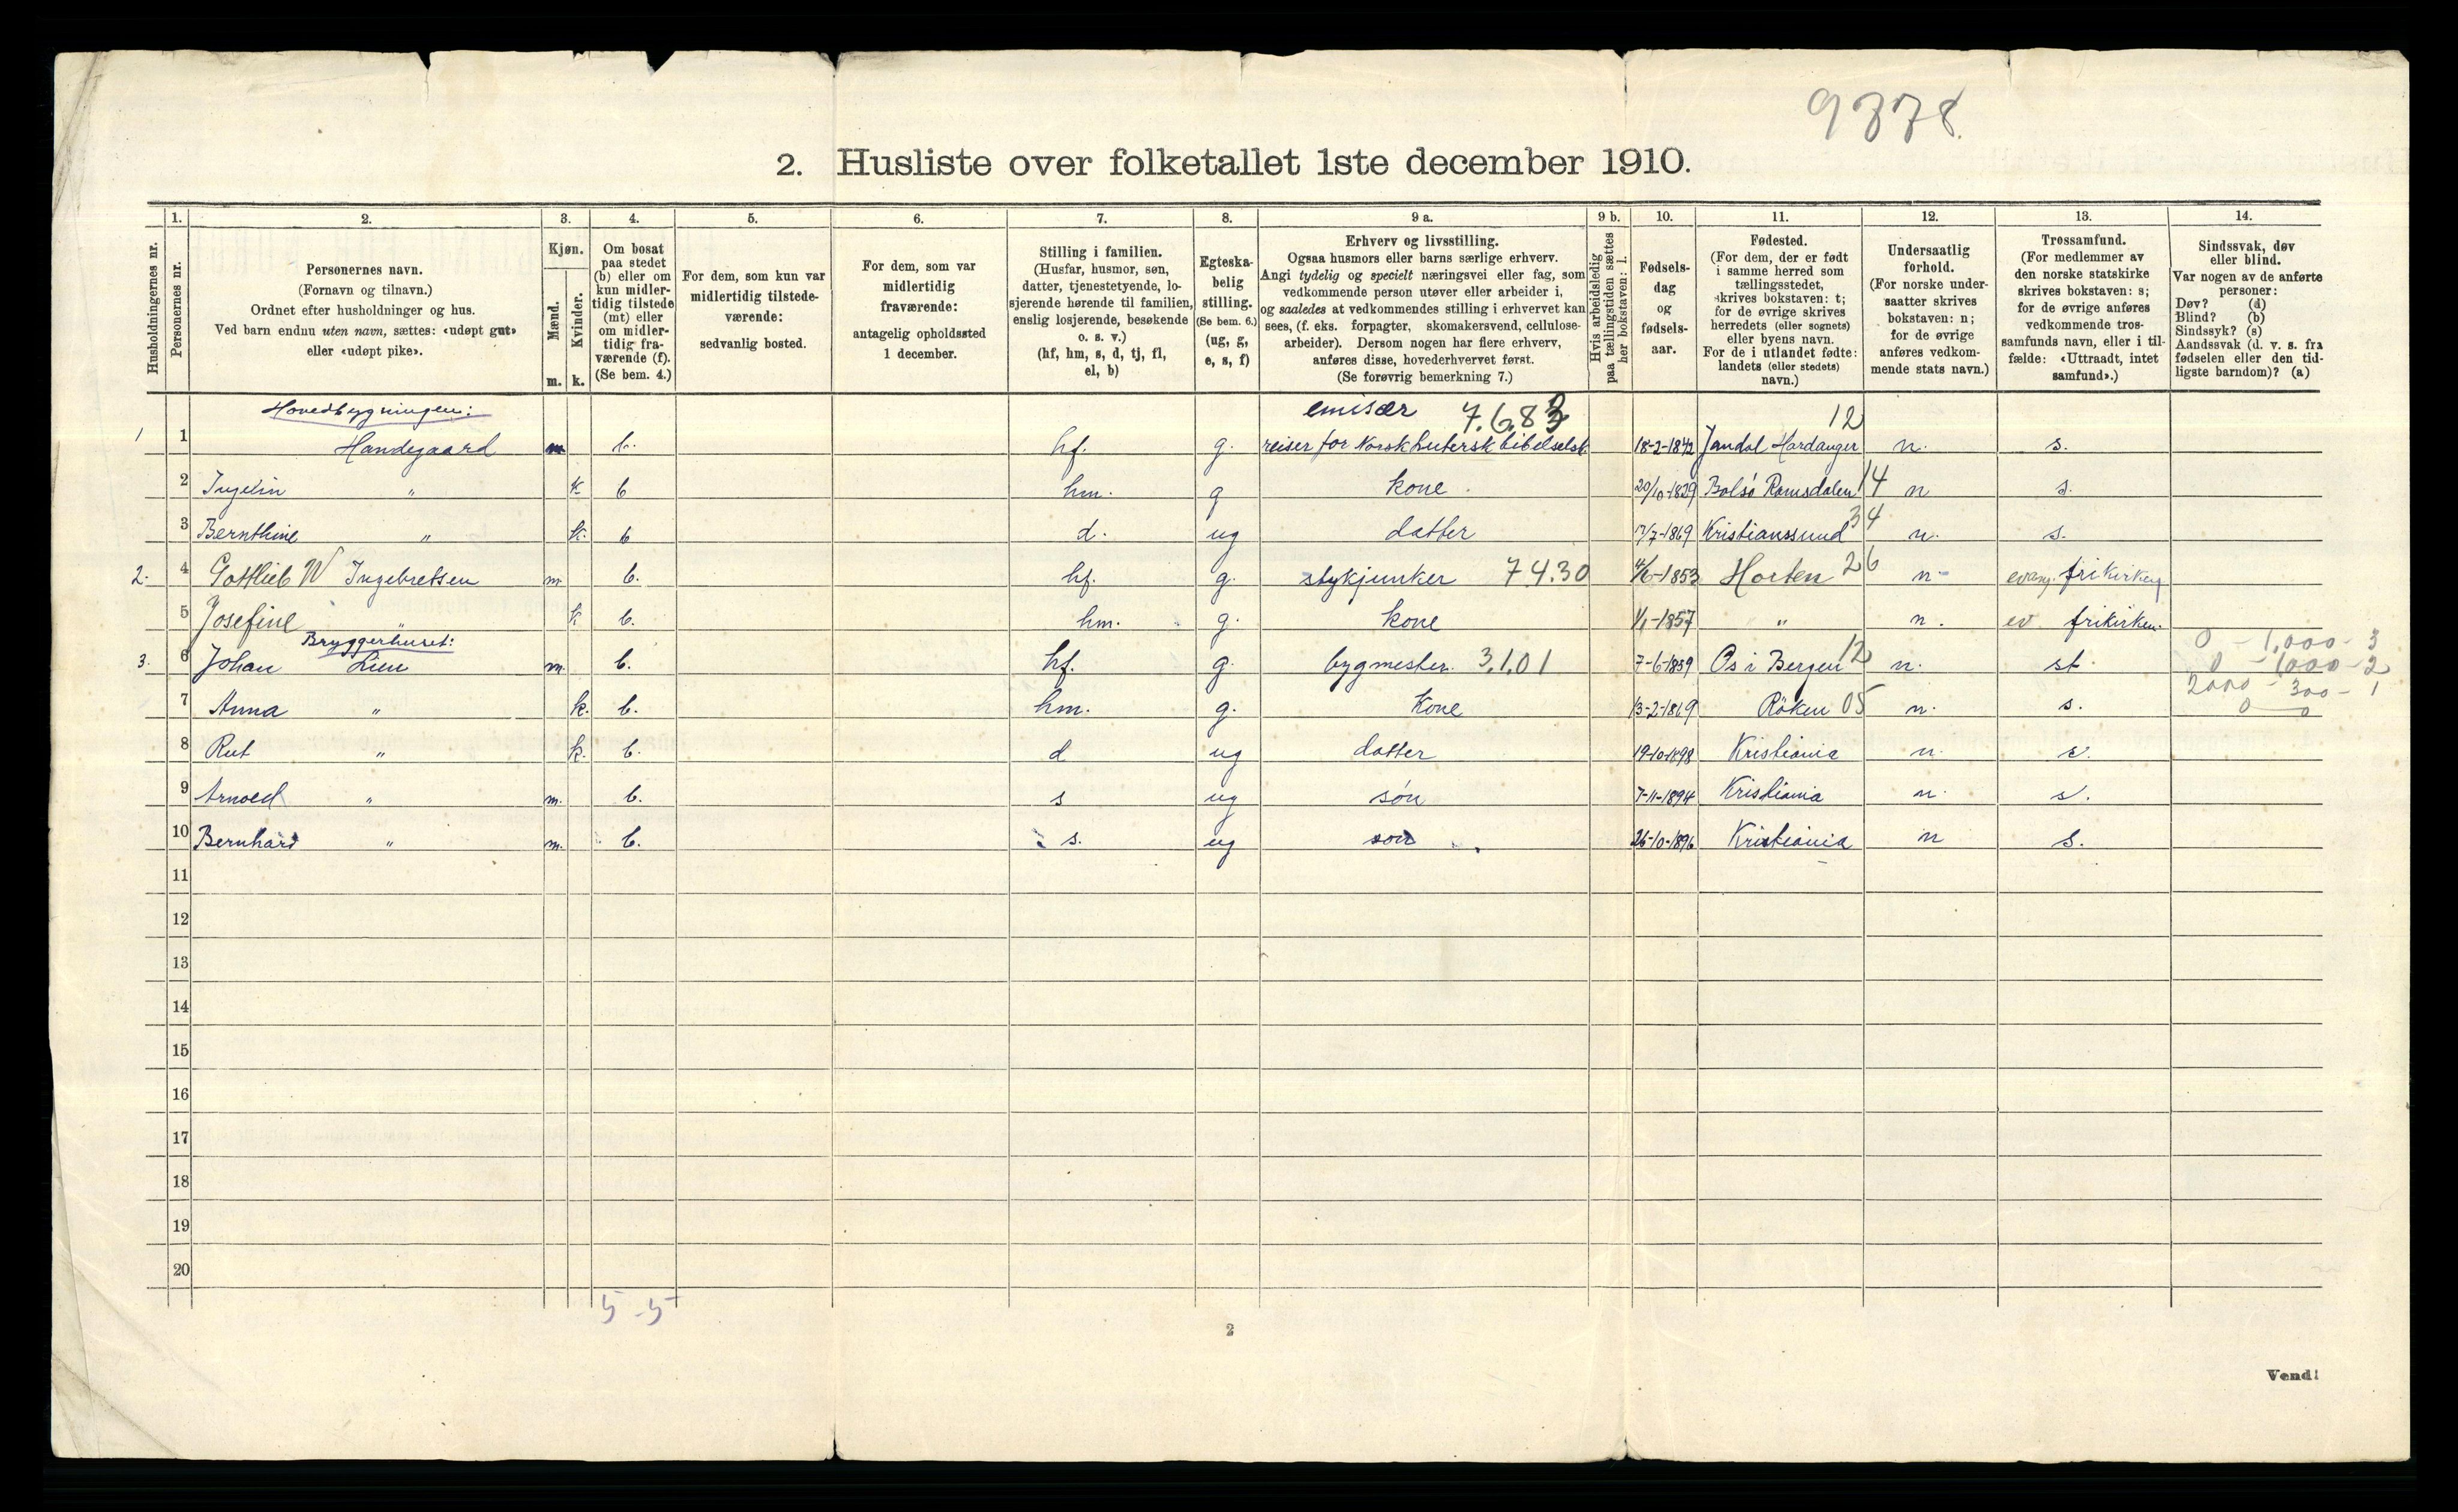 9778.
2. Husliste over folketallet 1ste december 1910.
1. 2. 3. 4. 5. 6. 7. 8. 9 a. 9 b. 10. 11. 12. 13. 14.
Husholdningernes nr.
Personernes nr.
Personernes navn.
(Fornavn og tilnavn.)
Ordnet efter husholdninger og hus.
Ved barn endnu uten navn, sættes: «udøpt gut»
eller «udøpt pike».
Kjøn.
Mænd.
Kvinder.
m. k.
Om bosat
paa stedet
(b) eller om
kun midler-
tidig tilstede
(mt) eller
om midler-
tidig fra-
værende (f).
(Se bem. 4.)
For dem, som kun var
midlertidig tilstede-
værende:
sedvanlig bosted.
For dem, som var
midlertidig
fraværende:
antagelig opholdssted
1 december.
Stilling i familien.
(Husfar, husmor, søn,
datter, tjenestetyende, lo-
sjerende hørende til familien,
enslig losjerende, besøkende
o. s. v.)
(hf, hm, s, d, tj, fl,
el, b)
Egteska-
belig
stilling.
(Se bem. 6.)
(ug, g,
e, s, f)
Erhverv og livsstilling.
Ogsaa husmors eller barns særlige erhverv.
Angi tydelig og specielt næringsvei eller fag, som
vedkommende person utøver eller arbeider i,
og saaledes at vedkommendes stilling i erhvervet kan
sees, (f. eks. forpagter, skomakersvend, cellulose-
arbeider). Dersom nogen har flere erhverv,
anføres disse, hovederhvervet først.
(Se forøvrig bemerkning 7.)
Hvis arbeidsledig
paa tællingstiden sættes
her bokstaven: l.
Fødsels-
dag
og
fødsels-
aar.
Fødested.
(For dem, der er født
i samme herred som
tællingsstedet,
skrives bokstaven: t;
for de øvrige skrives
herredets (eller sognets)
eller byens navn.
For de i utlandet fødte:
landets (eller stedets)
navn.)
Undersaatlig
forhold.
(For norske under-
saatter skrives
bokstaven: n;
for de øvrige
anføres vedkom-
mende stats navn.)
Trossamfund.
(For medlemmer av
den norske statskirke
skrives bokstaven: s;
for de øvrige anføres
vedkommende tros-
samfunds navn, eller i til-
fælde: «Uttraadt, intet
samfund».)
Sindssvak, døv
eller blind.
Var nogen av de anførte
personer:
Døv? (d)
Blind? (b)
Sindssyk? (s)
Aandssvak (d. v. s. fra
fødselen eller den tid-
ligste barndom)? (a)
Hovedbygningen: emisær 7.6.83 12
1 1 Handegaard m b. hf. g. reiser for Norsk Lutersk bibelselsk. 18-2-1842 Jondal Hardanger n. s.
2 Ingelin " k b hm. g kone. 20/10-1839 Bolsö Romsdalen 14 n s.
3 Bernthine " k. b d. ug datter 17/7-1869 Kristianssund 34 n. s.
2. 4 Gottlieb W Ingebretsen m. b. hf. g. stykjunker 74.30 4/6-1853 Horten 26 n- evang. frikirken
5 Josefine " k b. hm. g. kone 1/1-1857 " n. ev frikirken.
Bryggerhuset: 0 - 1,000 - 3
3. 6 Johan Lien m. b. hf. g. bygmester. 3.1.01 7-6-1859 Os i Bergen 12 n. st. 0 - 1000 - 2
2000 - 300 - 1
7 Anna " k. b. hm. g. Kone 13-2-1869 Röken 05 n. s. 0 0
8 Rut " k. b. d ug datter 19-10-1898 Kristiania n. s.
9 Arnold " m. b. s ug søn 7-11-1894 Kristiania n. s.
10 Bernhard " m. b. s. ug søn 26-10-1896 Kristiania n s.
11
12
13
14
15
16
17
18
19
20
5 - 5
2
Vend!